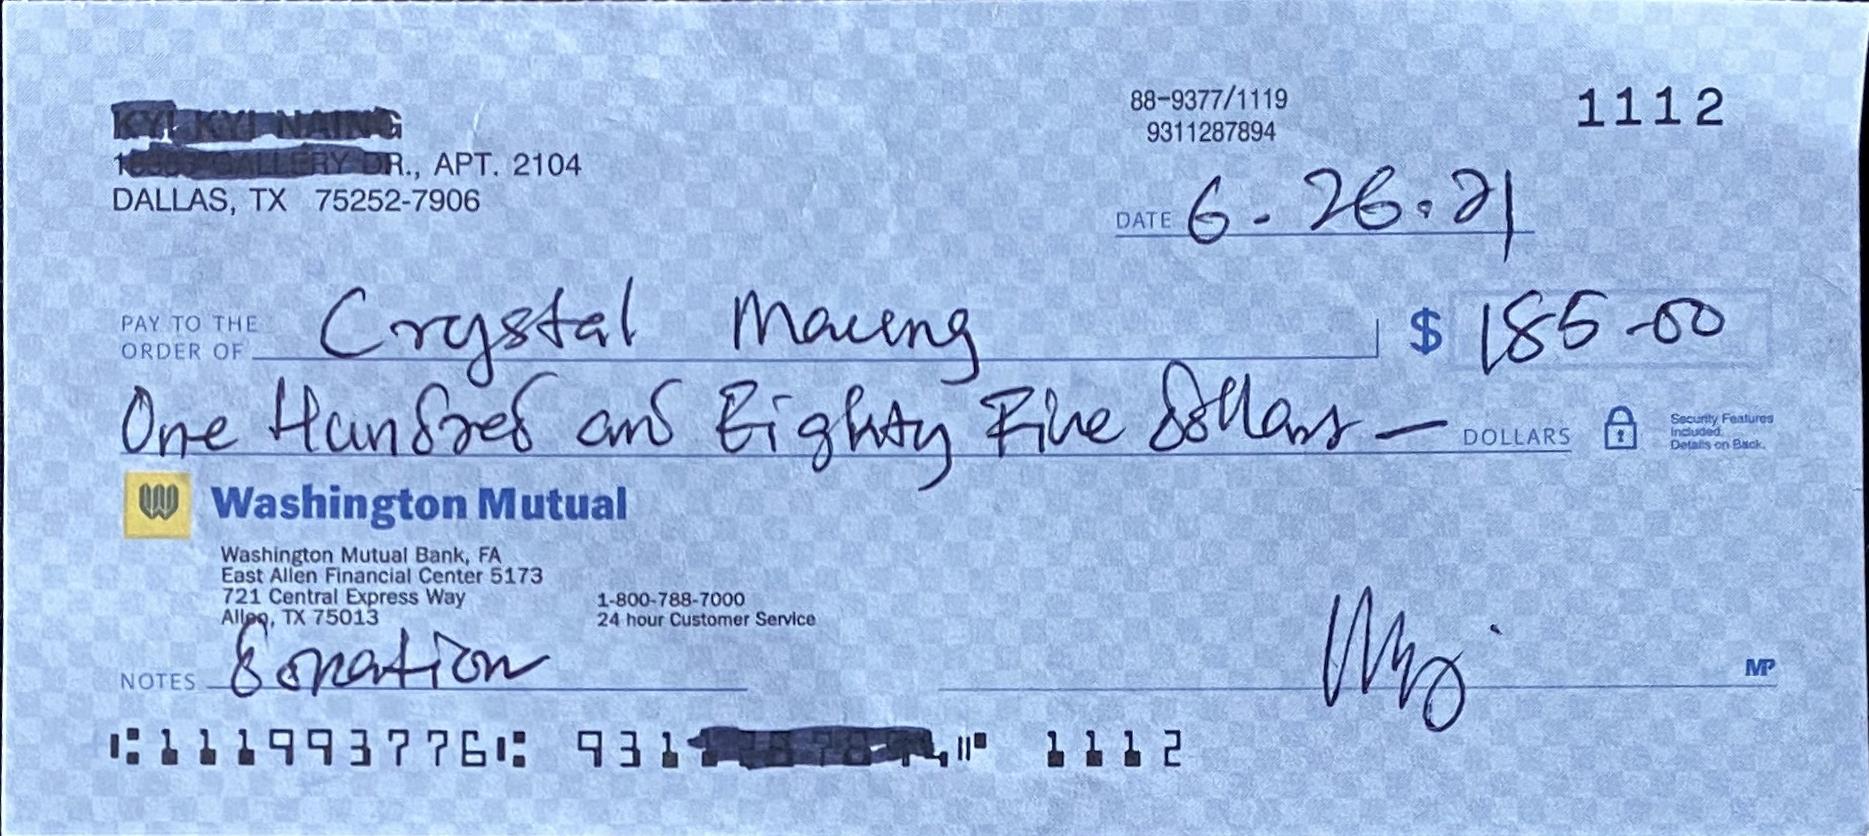 88-9377/1119
9311287894
1112
DR., APT. 2104
DALLAS, TX 75252-7906
DATE 6-26.21
PAY TO THE
ORDER OF Crystal Maung $ 185-00
One Hundred and Eighty Five Dollars — DOLLARS
Security Features
Included.
Details on Back.
Washington Mutual
Washington Mutual Bank, FA
East Allen Financial Center 5173
721 Central Express Way
Allen, TX 75013
1-800-788-7000
24 hour Customer Service
NOTES Donation
MP
⑆111993776⑆ 931 ⑈ 1112